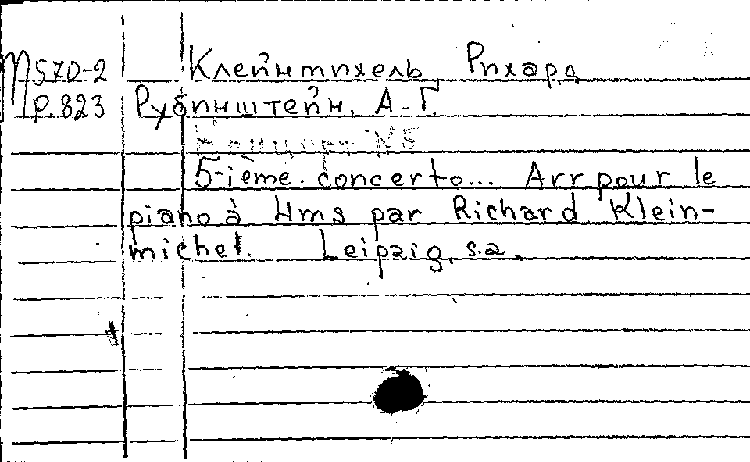 М570-2 Клейнмихель, Рихард
Р.823 Рубинштейн, А.Г.
Концерт №5
5-ième concerto... Arr pour le
piano à 4ms par Richard Klein-
michel. Leipzig, s.a.